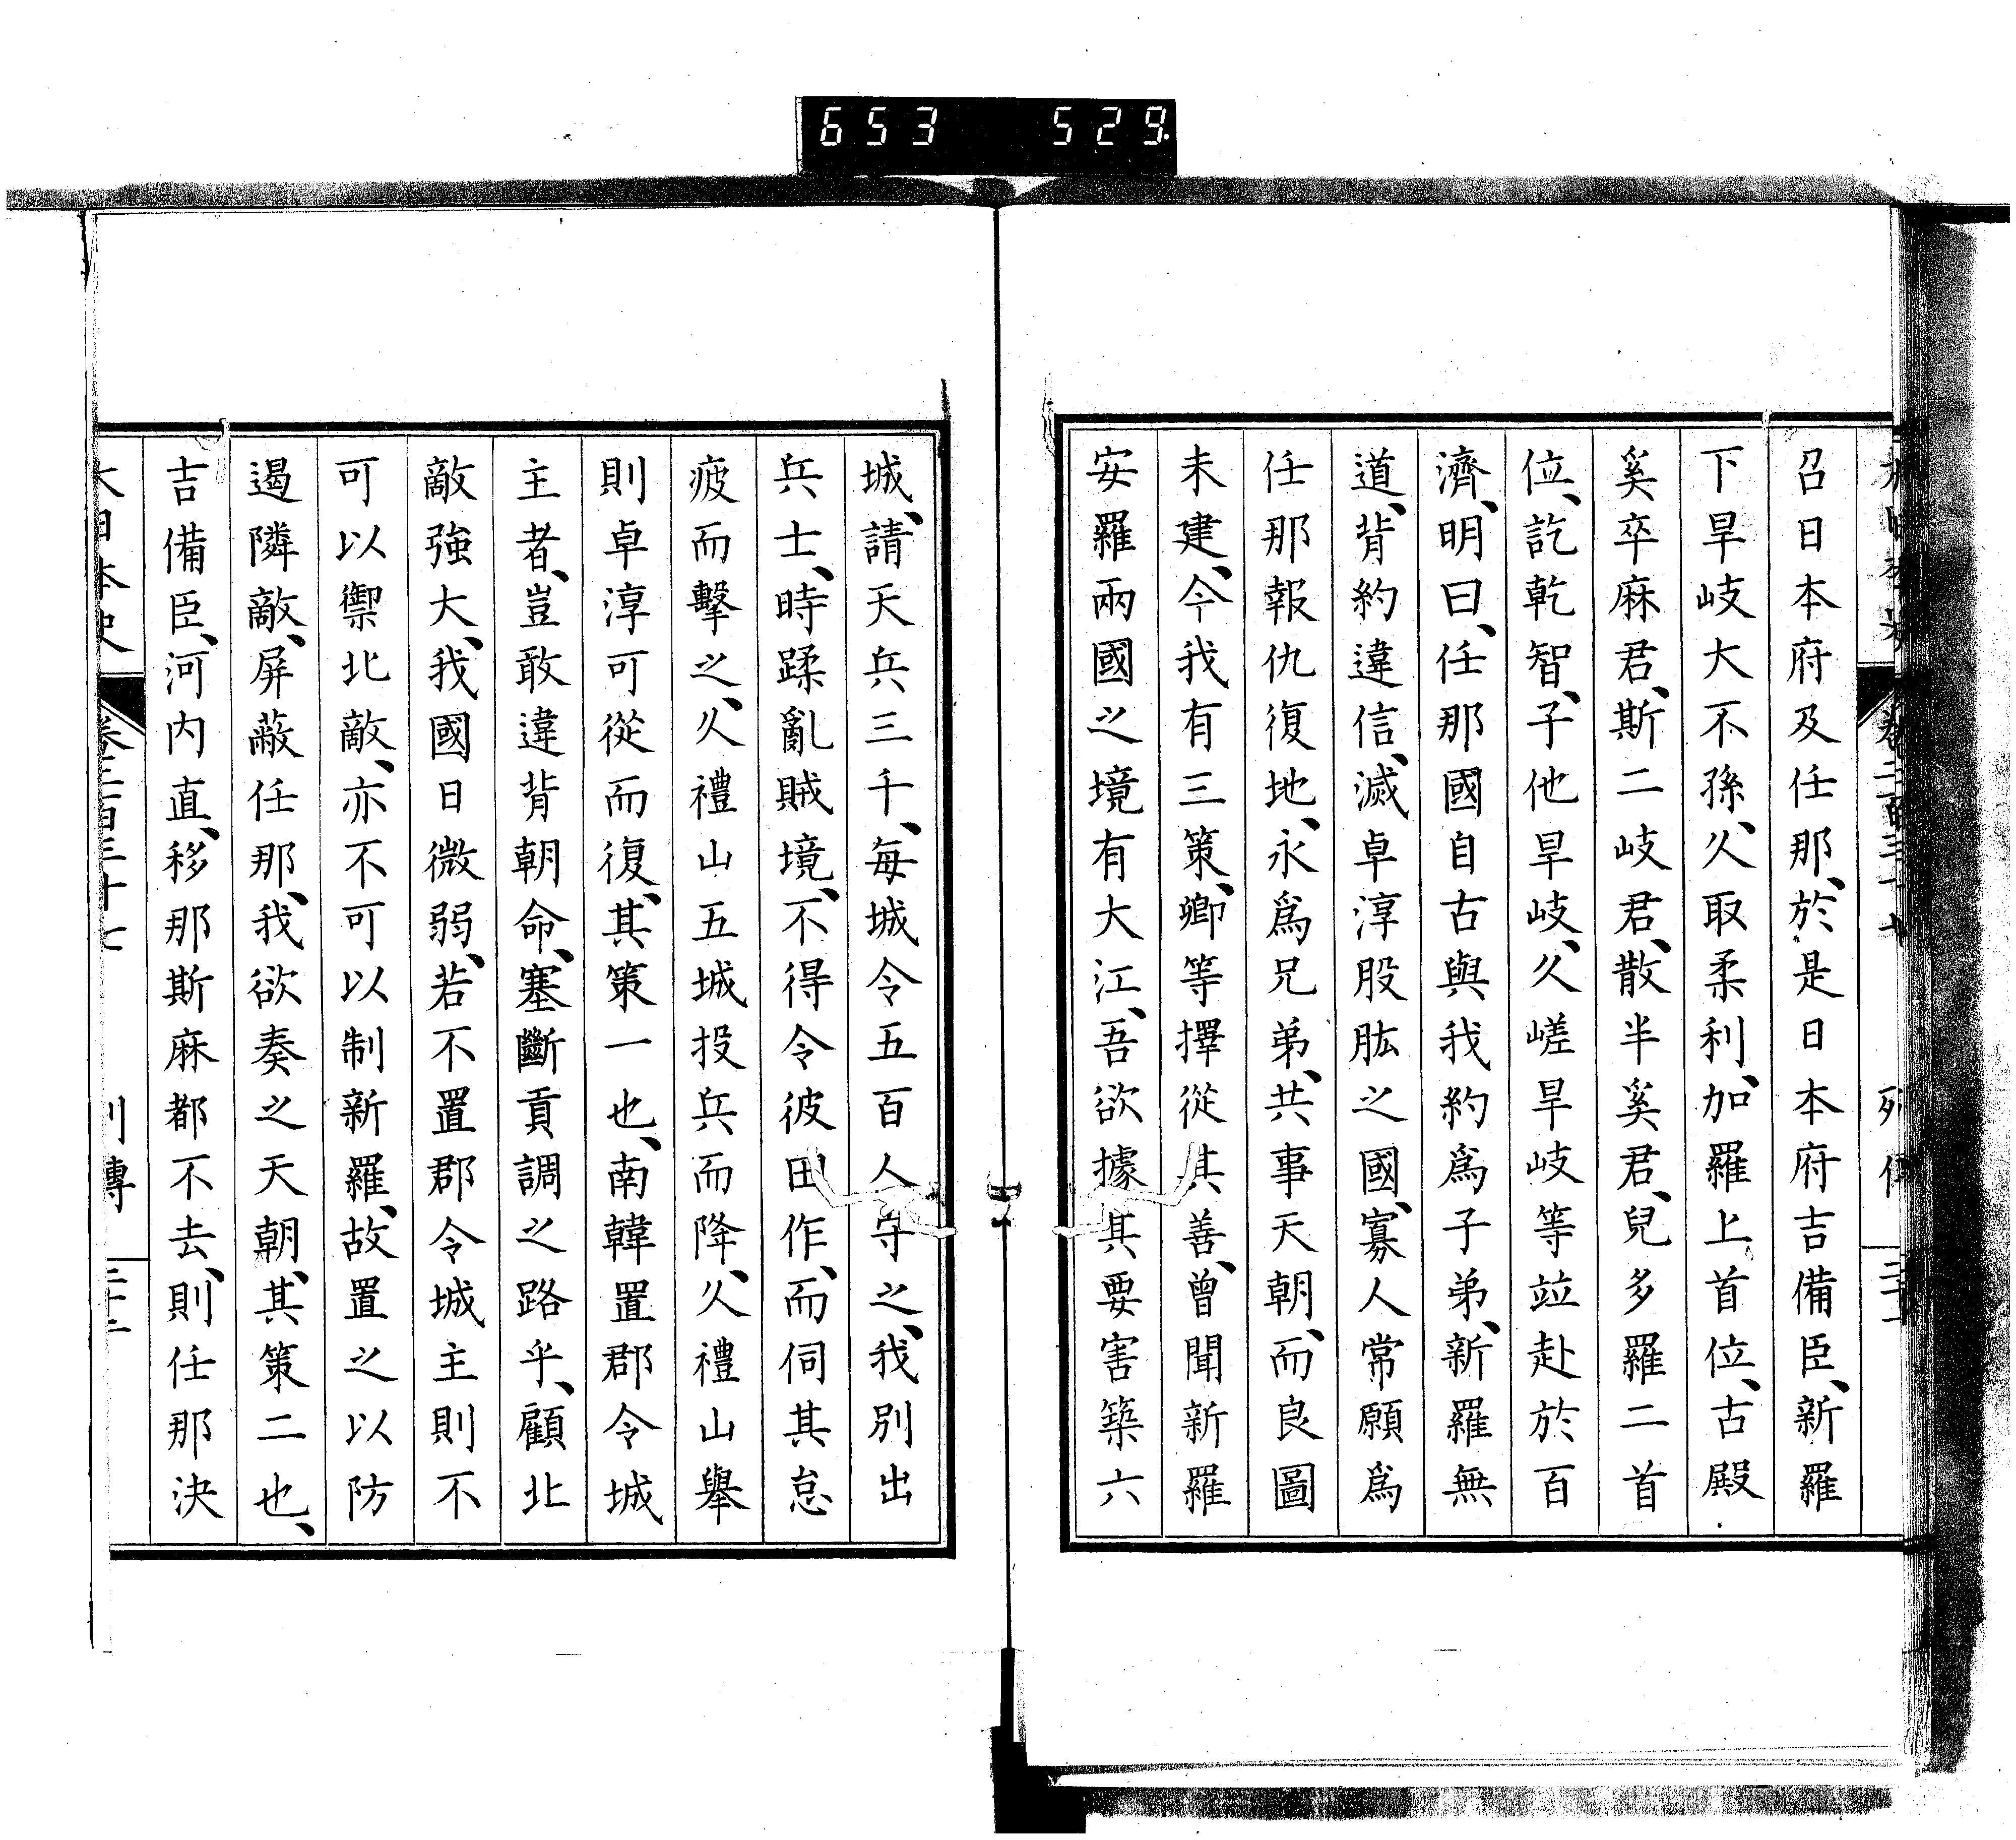 653 529
召日本府及任那、於是日本府吉備臣、新羅
下旱岐大不孫、久取柔利、加羅上首位、古殿
奚卒麻君、斯二岐君、散半奚君、兒多羅二首
位、訖乾智、子他旱岐、久嵯旱岐等竝赴於百
濟、明曰、任那國自古與我約爲子弟、新羅無
道、背約違信、滅卓淳股肱之國、寡人常願爲
任那報仇復地、永爲兄弟、共事天朝、而良圖
未建、今我有三策、卿等擇從其善、曾聞新羅
安羅兩國之境有大江、吾欲據其要害築六
城、請天兵三千、每城令五百人守之、我別出
兵士、時蹂亂賊境、不得令彼田作、而伺其怠
疲而擊之、久禮山五城投兵而降、久禮山舉
則卓淳可從而復、其策一也、南韓置郡令城
主者、豈敢違背朝命、塞斷貢調之路乎、顧北
敵強大、我國日微弱、若不置郡令城主則不
可以禦北敵、亦不可以制新羅、故置之以防
遏隣敵、屏蔽任那、我欲奏之天朝、其策二也、
吉備臣、河內直、移那斯麻都不去、則任那決
大日本史 卷二百三十七 列傳